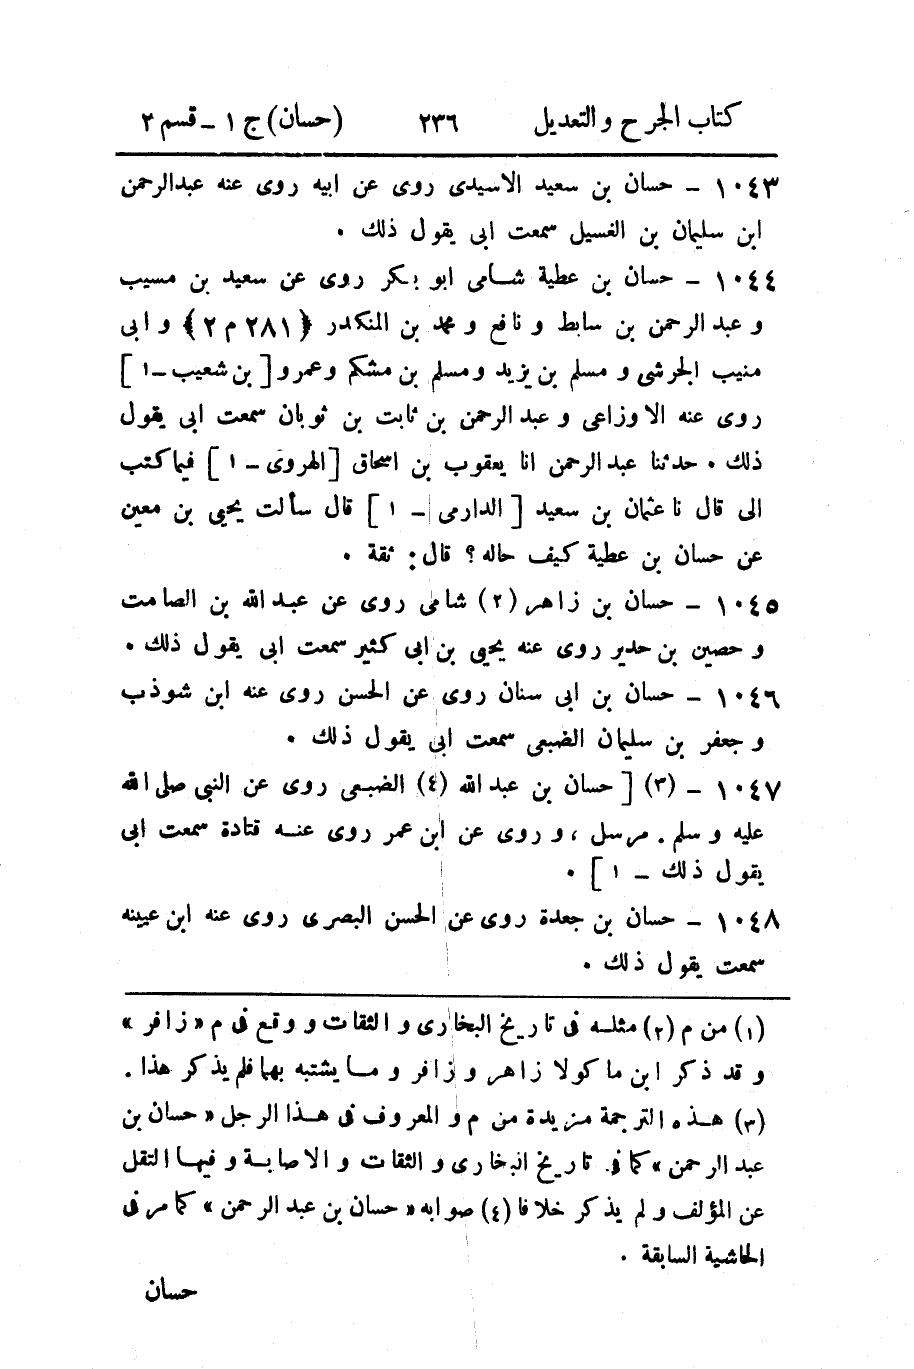 كتاب الجرح والتعديل ٢٣٦ (حسان) ج ١ ـ قسم ٢
١٠٤٣ ـ حسان بن سعيد الاسيدى روى عن ابيه روى عنه عبدالرحمن
ابن سليمان بن الغسيل سمعت ابى يقول ذلك .
١٠٤٤ ـ حسان بن عطية شامى ابو بكر روى عن سعيد بن مسيب
و عبد الرحمن بن سابط و نافع و محمد بن المنكدر ﴿٢٨١ م ٢﴾ و ابى
منيب الجرشى و مسلم بن يزيد ومسلم بن مشكم وعمرو [ بن شعيب ـ ١ ]
روى عنه الاوزاعى و عبد الرحمن بن ثابت بن ثوبان سمعت ابى يقول
ذلك . حدثنا عبد الرحمن انا يعقوب بن اسحاق [ الهروى ـ ١ ] فيما كتب
الى قال نا عثمان بن سعيد [ الدارمى ـ ١ ] قال سألت يحيى بن معين
عن حسان بن عطية كيف حاله؟ قال: ثقة .
١٠٤٥ ـ حسان بن زاهر (٢) شامى روى عن عبد الله بن الصامت
و حصين بن حدير روى عنه يحيى بن ابى كثير سمعت ابى يقول ذلك .
١٠٤٦ ـ حسان بن ابى سنان روى عن الحسن روى عنه ابن شوذب
و جعفر بن سليمان الضبعى سمعت ابى يقول ذلك .
١٠٤٧ ـ (٣) [ حسان بن عبد الله (٤) الضبعى روى عن النبى صلى الله
عليه و سلم . مرسل ، و روى عن ابن عمر روى عنه قتادة سمعت ابى
يقول ذلك ـ ١ ] .
١٠٤٨ ـ حسان بن جعدة روى عن الحسن البصرى روى عنه ابن عيينه
سمعت يقول ذلك .
(١) من م (٢) مثله فى تاريخ البخارى و الثقات و وقع فى م « زافر »
و قد ذكر ابن ماكولا زاهر و زافر و ما يشتبه بهما فلم يذكر هذا .
(٣) هذه الترجمة مزيدة من م و المعروف فى هذا الرجل « حسان بن
عبد الرحمن » كما فى تاريخ البخارى و الثقات و الاصابة و فيها النقل
عن المؤلف و لم يذكر خلافا (٤) صوابه « حسان بن عبد الرحمن » كما مر فى
الحاشية السابقة .
حسان